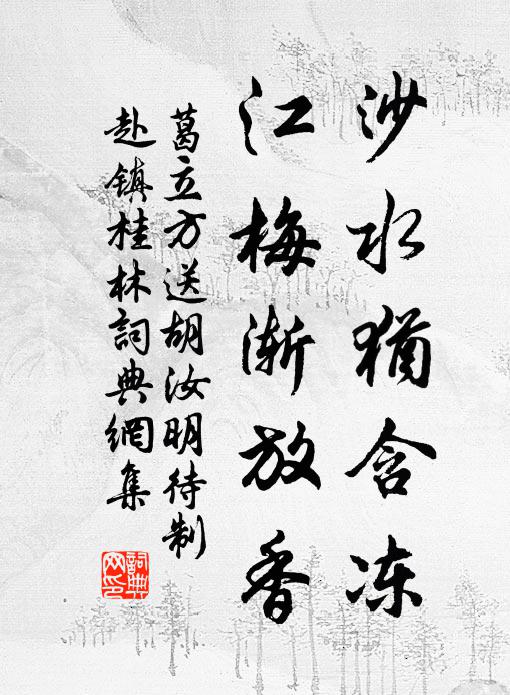 沙水犹含冻
江梅渐放香
葛立方送胡汝明待制
赴镇桂林詞典網集
詞典
网印